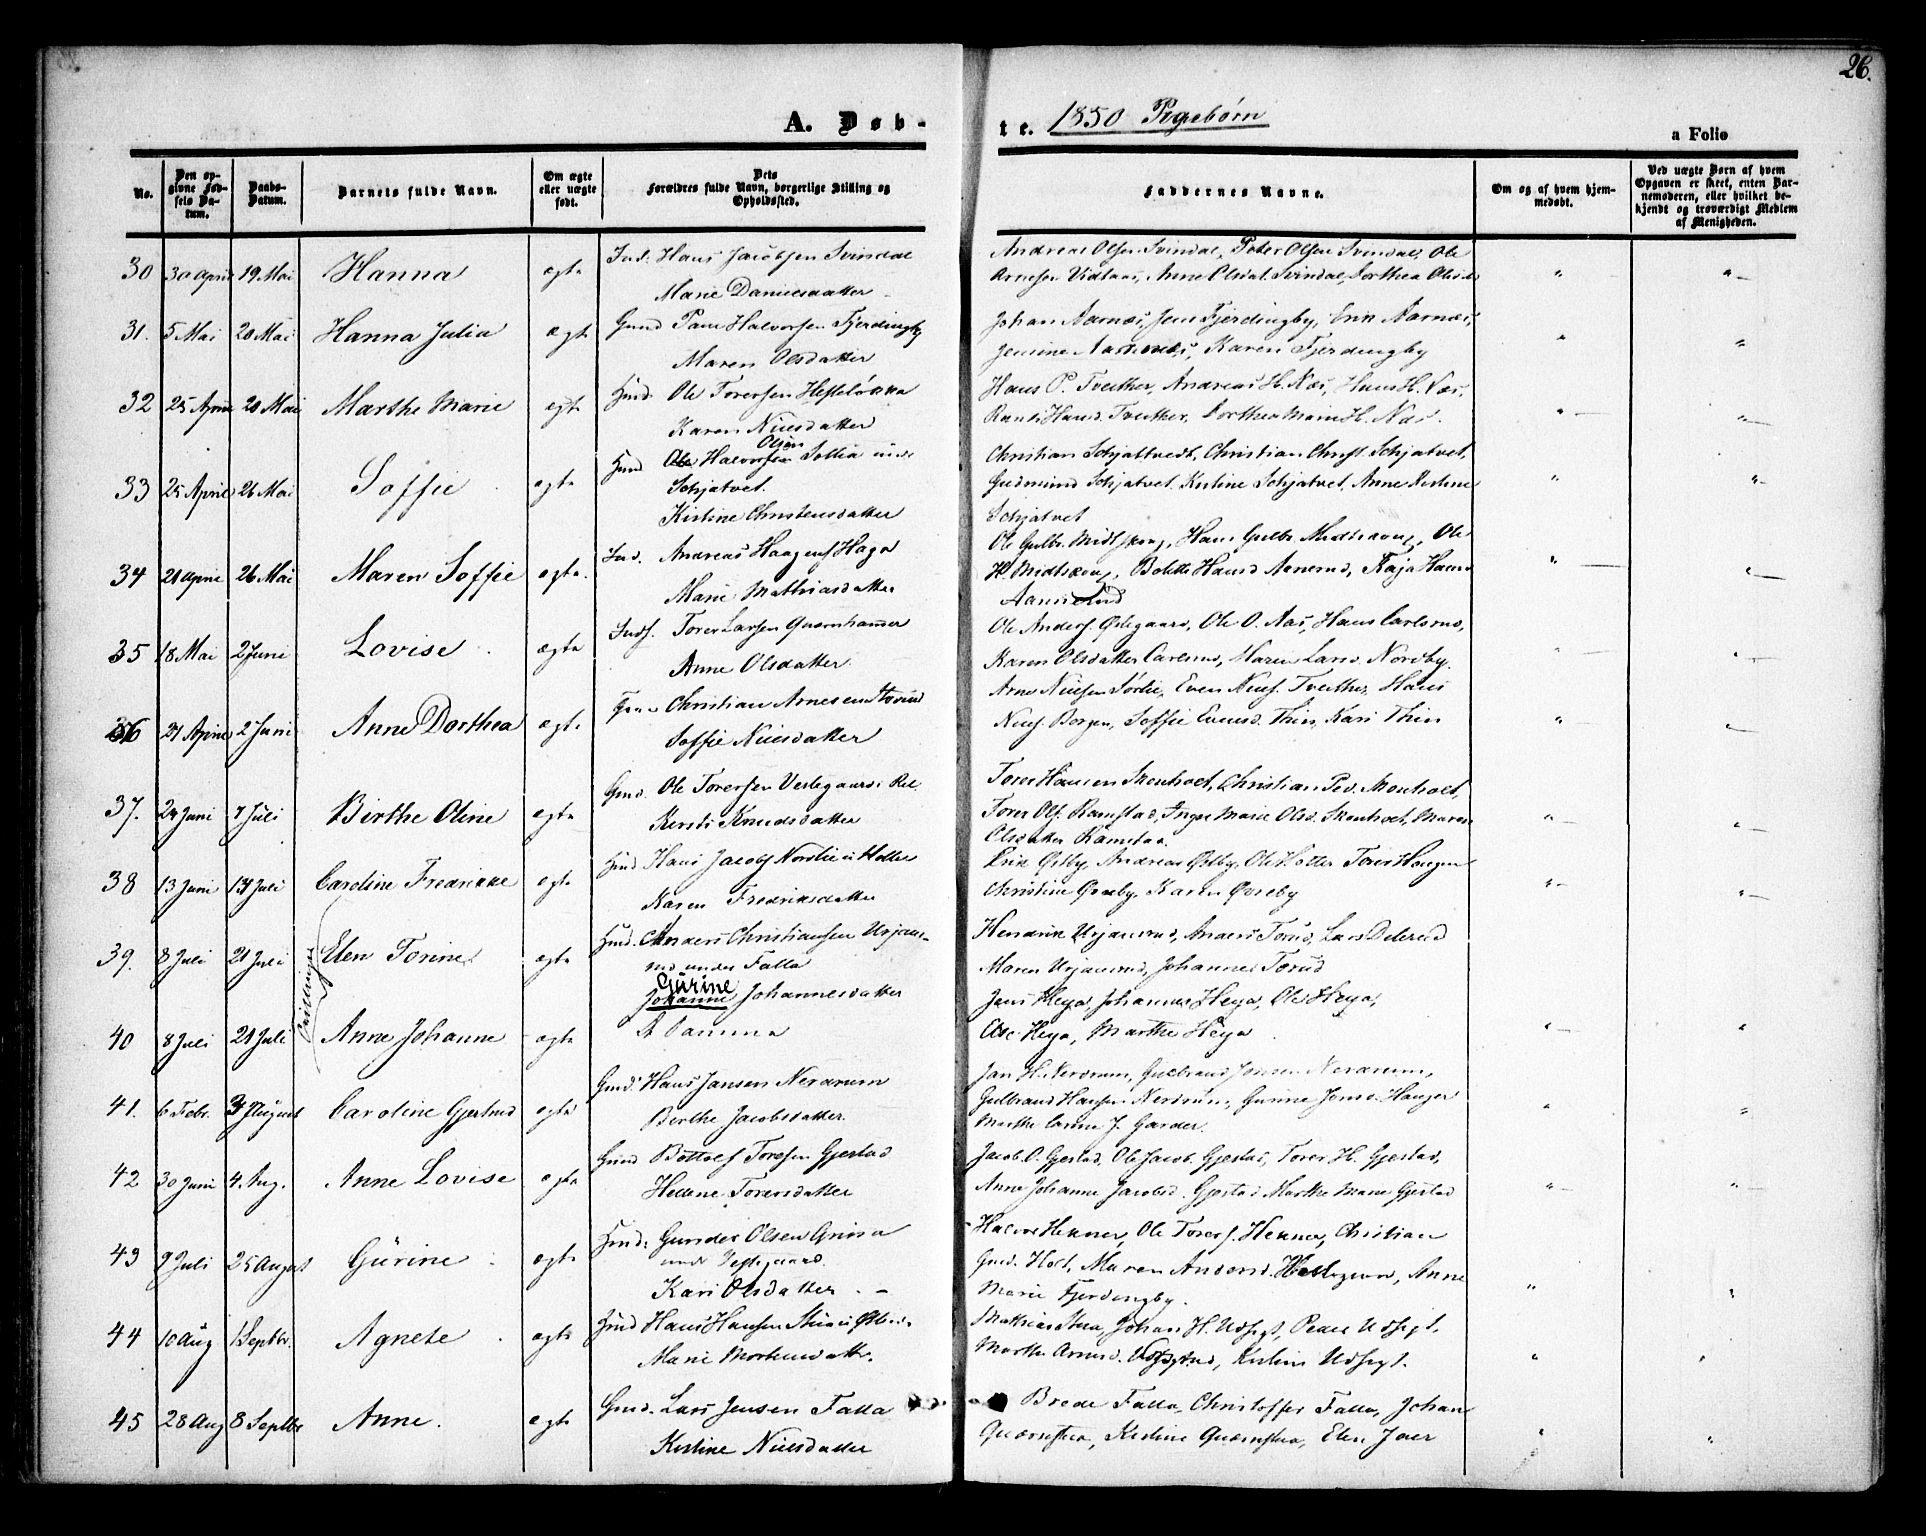 26.
A. Døb-
te. 1850 Pigebørn
a Folio
No.
Den op-
givne Fød-
sels Da-
tum.
Daabs-
Datum.
Barnets fulde Navn.
Om ægte
eller uægte
født.
Dets
Forældres fulde Navn, borgerlige Stilling og
Opholdssted.
Faddernes Navne.
Om og af hvem hjem-
medøbt.
Ved uægte Børn af hvem
Opgaven er skeet, enten Bar-
nemoderen, eller hvilket be-
kjendt og troværdigt Medlem
af Menigheden.
30 30 April 19 Mai Hanna ægte Hans Jacobsen Svindal
Marie Danielsdatter
Andreas Olsen Svindal, Peter Olsen Svindal, Ole
Arnesen Anne Olsdat. Svindal, Dorthea Olsd.
31. 5 Mai 20 Mai Hanna Julia ægte Gmd Halvorsen Fjerdingby
Maren Olsdatter
Johan Aarnæs, Jens Fjerdingby, Erik Aarnæs,
Jensine Aarnæs, Karen Fjerdingby
32 25 April 20 Mai Marthe Marie ægte Hmd. Ole Torersen
Karen Nielsdatter
Hans P. Tveither, Andreas H. Næs, Hans H. Næs,
Hansd. Tveither, Dorthea Marn H. Næs.
33 25 April 26 Mai Soffie ægte Hmd Halvorsen Olsen under
Schjatvet.
Kirstine Christensdatter
Christian Schjattvedt, Christian Christ. Schjatvet,
Gudmund Schjatvet, Kirstine Schjatvet, Anne Kirstine
Schjatvet
34 21 April 26 Mai Maren Soffie ægte. Ind. Andreas Haagens. Haga
Marie Mathiasdatter
Ole Gulbr. Midtskoug, Hans Gulbr. Midtskoug, Ole
H. Midtskoug, Bolette Hansd. Kaja Hansd
35 18 Mai 2 Juni Lovise ægte Torer Larsen Quernhammer
Anne Olsdatter
Ole Anders. Østegaard, Ole O. Aas, Hans Carlsrud,
Karen Olsdatter Carlsrud, Maren Larsd. Nordby.
36 21 April 2 Juni Anne Dorthea ægte. Christian Arnesen
Soffie Nielsdatter
Arne Nielsen Sørlie, Even Niels. Tveither, Hans
Niels. Borgen, Soffie Evensd. Thin, Kari Thin
37. 24 Juni 7 Juli Birthe Oline ægte Gmd. Ole Torersen Vestegaard
Kersti Knudsdatter
Torer Hansen Skenholt, Christian Ped. Monholt,
Torer Ols. Ramstad, Inger Marie Olsd. Skenholt, Maren
Olsdatter Ramstad.
38 13 Juni 14 Juli Caroline Fredrikke ægte Hmd Hans Jacobs. Nordlie
Karen Fredriksdatter
Erik Østby, Andreas Østby, Ole Holter Torer Haugen
Christine Østby, Karen Øvreby
39. 8 Juli 21 Juli Elen Torine ægte Hmd. Anders Christiansen Urjans-
rud under Falla
Gurine
Johanne Johannesdatter
Hendrik Urjansrud, Anders Torud, Lars Delerud
Maren Urjansrud, Johannes Torud
40 8 Juli 21 Juli Anne Johanne ægte
Jens Heya, Johannes Heya, Ole Heya,
Else Heya, Marthe Heya.
41. 6 Febr. August Caroline Gjertrud ægte Gmd. Hans Jansen Nerdrum
Birthe Jacobsdatter.
Jan H. Nerdrum, Gulbrand Jensen Nerdrum,
Gulbrand Hansen Nerdrum, Gurine Jensd. Hauger
Marthe Carine J. Garder.
42 30 Juni 4. Aug. Anne Lovise ægte Gmd Bottolf Toresen Gjestad
Hellene Torersdatter
Jacob O. Gjestad, Ole Jacob. Gjestad, Torer H. Gjestad,
Anne Johanne Jacobsd. Gjestad Marthe Marie Gjestad
43 9 Juli 25 August Gurine ægte Hmd. Gunder Olsen
under Vestegaard.
Kari Olsdatter.
Halvor Hexner, Ole Torers. Hexner, Christian
Gmd. Holt, Maren Andersd. Anne
Marie Fjerdingby.
44 10 Aug 1 Septbr. Agnete ægte Hmd Hans Hansen
Marie Mortensdattr.
Mathias Johan H. Udsigt, Peder Udsigt,
Marthe Kirstine Udsigt.
45 28 Aug 8 Septbr Anne. ægte Gmd. Lars Jensen Falla
Kirstine Nielsdatter
Brede Falla, Christoffer Falla, Johan
Quernstua, Kirstine Quernstua, Elen Jaer